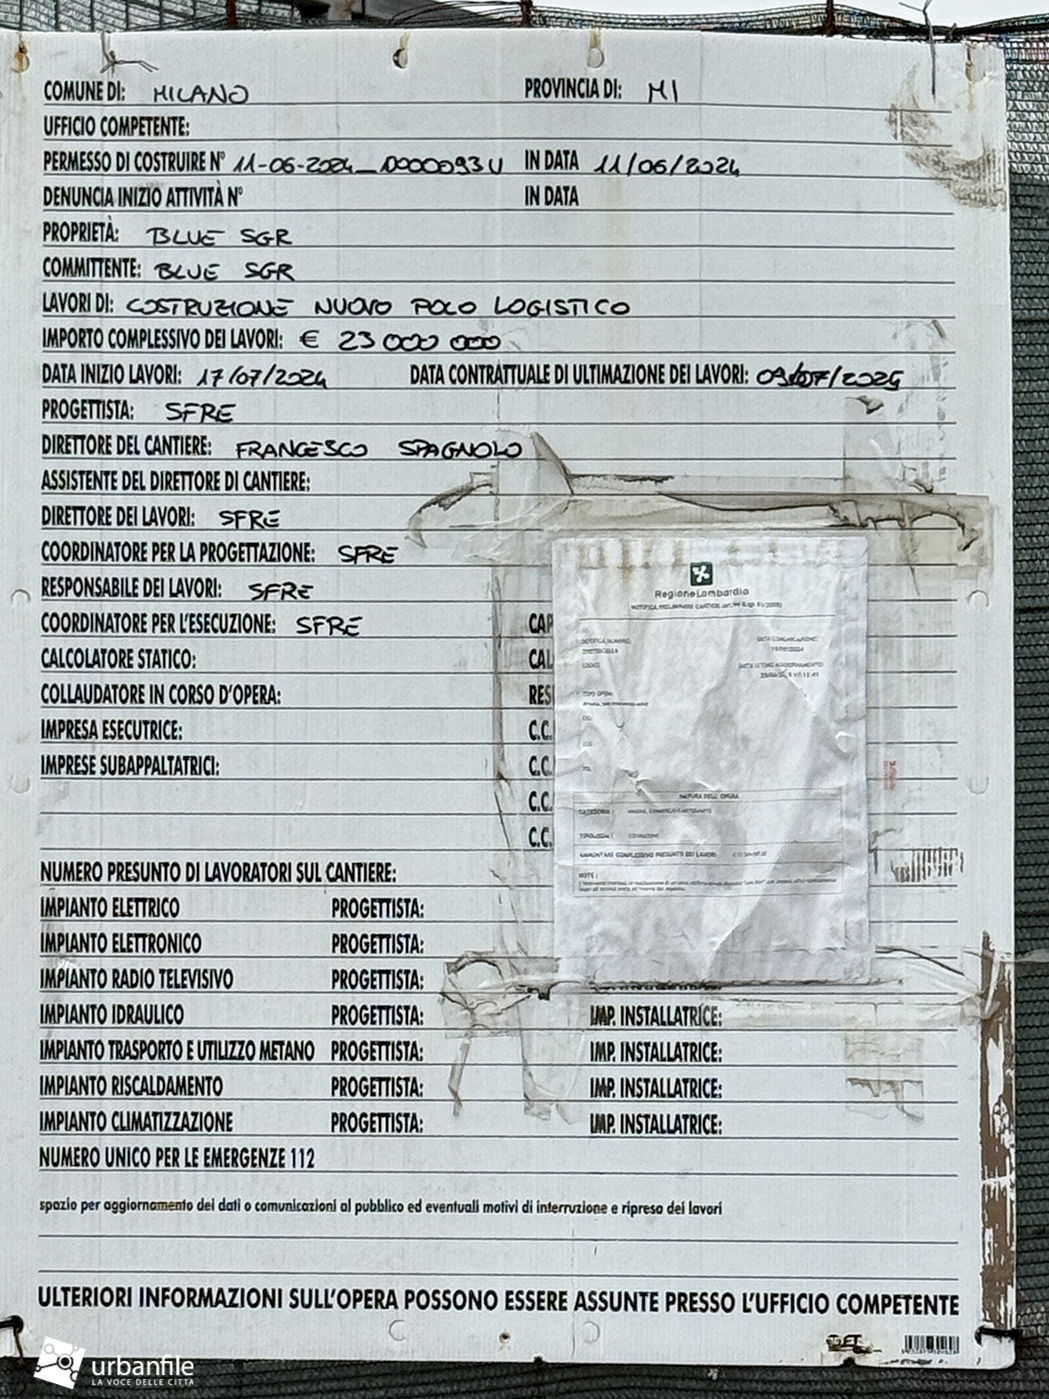 COMUNE DI: MILANO PROVINCIA DI: MI
UFFICIO COMPETENTE:
PERMESSO DI COSTRUIRE N° 11-06-2024_0000093U IN DATA 11/06/2024
DENUNCIA INIZIO ATTIVITÀ N° IN DATA
PROPRIETÀ: BLUE SGR
COMMITTENTE: BLUE SGR
LAVORI DI: COSTRUZIONE NUOVO POLO LOGISTICO
IMPORTO COMPLESSIVO DEI LAVORI: € 23 000 000
DATA INIZIO LAVORI: 17/07/2024 DATA CONTRATTUALE DI ULTIMAZIONE DEI LAVORI:
PROGETTISTA: SFRE
DIRETTORE DEL CANTIERE: FRANCESCO SPAGNOLO
ASSISTENTE DEL DIRETTORE DI CANTIERE:
DIRETTORE DEI LAVORI: SFRE
COORDINATORE PER LA PROGETTAZIONE: SFRE
RESPONSABILE DEI LAVORI: SFRE
COORDINATORE PER L'ESECUZIONE: SFRE CAP
CALCOLATORE STATICO: CAL
COLLAUDATORE IN CORSO D'OPERA: RES
IMPRESA ESECUTRICE: C.C.
IMPRESE SUBAPPALTATRICI: C.C.
C.C.
C.C.
RegioneLombardia
NOTIFICA PRELIMINARE CANTIERE
NOTIFICA NUMERO
DATA COMUNICAZIONE
DATA ULTIMO AGGIORNAMENTO
TIPO OPERA
NATURA DELL'OPERA
CATEGORIA :
TIPOLOGIA :
AMMONTARE COMPLESSIVO PRESUNTO DEI LAVORI
NOTE :
NUMERO PRESUNTO DI LAVORATORI SUL CANTIERE:
IMPIANTO ELETTRICO PROGETTISTA:
IMPIANTO ELETTRONICO PROGETTISTA:
IMPIANTO RADIO TELEVISIVO PROGETTISTA:
IMPIANTO IDRAULICO PROGETTISTA: IMP. INSTALLATRICE:
IMPIANTO TRASPORTO E UTILIZZO METANO PROGETTISTA: IMP. INSTALLATRICE:
IMPIANTO RISCALDAMENTO PROGETTISTA: IMP. INSTALLATRICE:
IMPIANTO CLIMATIZZAZIONE PROGETTISTA: IMP. INSTALLATRICE:
NUMERO UNICO PER LE EMERGENZE 112
spazio per aggiornamento dei dati o comunicazioni al pubblico ed eventuali motivi di interruzione e ripresa dei lavori
ULTERIORI INFORMAZIONI SULL'OPERA POSSONO ESSERE ASSUNTE PRESSO L'UFFICIO COMPETENTE
urbanfile
LA VOCE DELLE CITTÀ